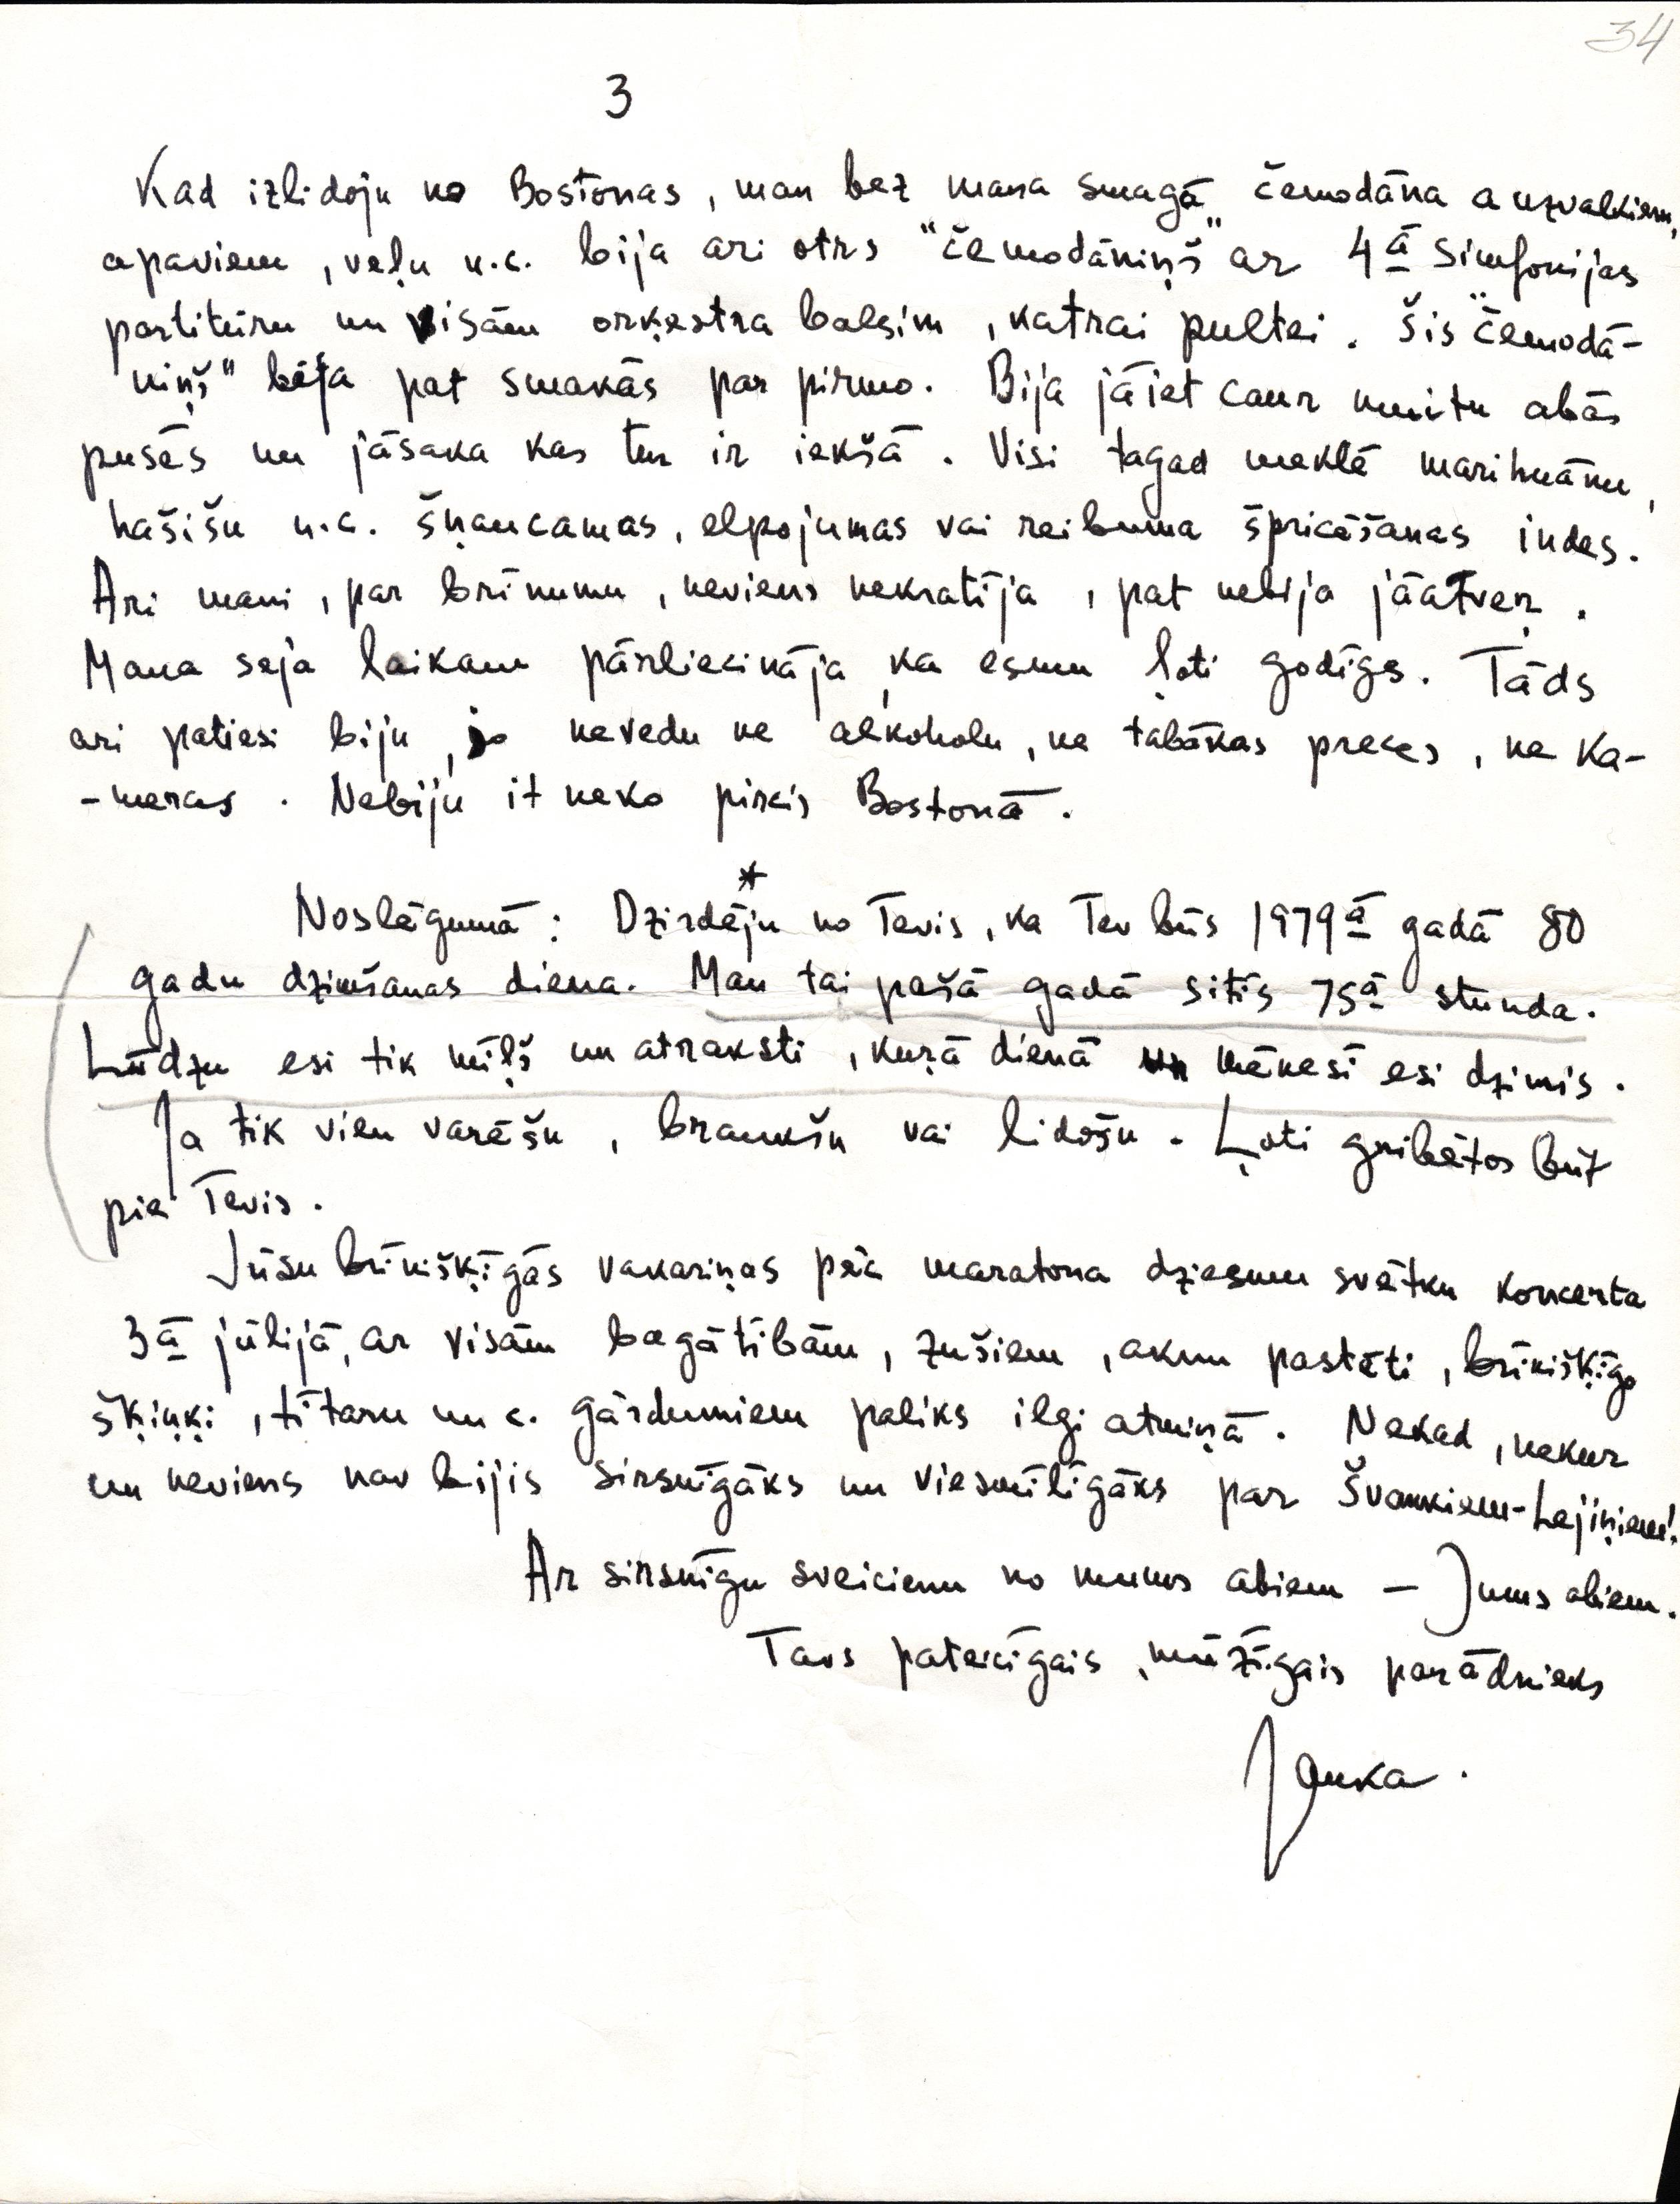 34
3
Kad izlidoju no Bostonas, man bez mana smagā čemodāna a uzvalkiem,
apaviem, veļu u.c. bija ari otrs "čemodāniņš" ar 4ā Simfonijas
partitūru un visām orķestra balsim, katrai pultei. Šis "čemodā-
niņš" bija pat smakās par pirmo. Bija jāiet caur muitu abās
pusēs un jāsaka kas tur ir iekšā. Visi tagad meklē marihuānu,
hašišu u.c. šņaucamas, elpojumas vai reibuma špricēšanas indes.
Ari mani, par brīnumu, neviens nekratīja, pat nebija jāatver.
Mana seja laikam pārliecināja, ka esmu ļoti godīgs. Tāds
ari patiesi biju, jo nevedu ne alkoholu, ne tabākas preces, ne ka-
-meras. Nebiju it neko pircis Bostonā.
*
Noslēgumā: Dzirdēju no Tevis, ka Tev būs 1979ā gadā 80
gadu dzimšanas diena. Man tai pašā gadā sitīs 75ā stunda.
Lūdzu esi tik mīļš un atraksti, kuŗā dienā un mēnesī esi dzimis.
Ja tik vien varēšu, braukšu vai lidošu. Ļoti gribētos būt
pie Tevis.
Jūsu brīnišķīgās vakariņas pēc maratona dziesmu svētku koncerta
3ā jūlijā, ar visām bagātībām, zušiem, aknu pastēti, brīnišķīgo
šķiņķi, tītaru un c. gārdumiem paliks ilgi atmiņā. Nekad, nekur
un neviens nav bijis sirsnīgāks un viesmīlīgāks par Švankiem-Lejiņiem!
Ar sirsnīgu sveicienu no mums abiem – Jums abiem.
Tavs pateicīgais, mūžīgais parādnieks
Janka.